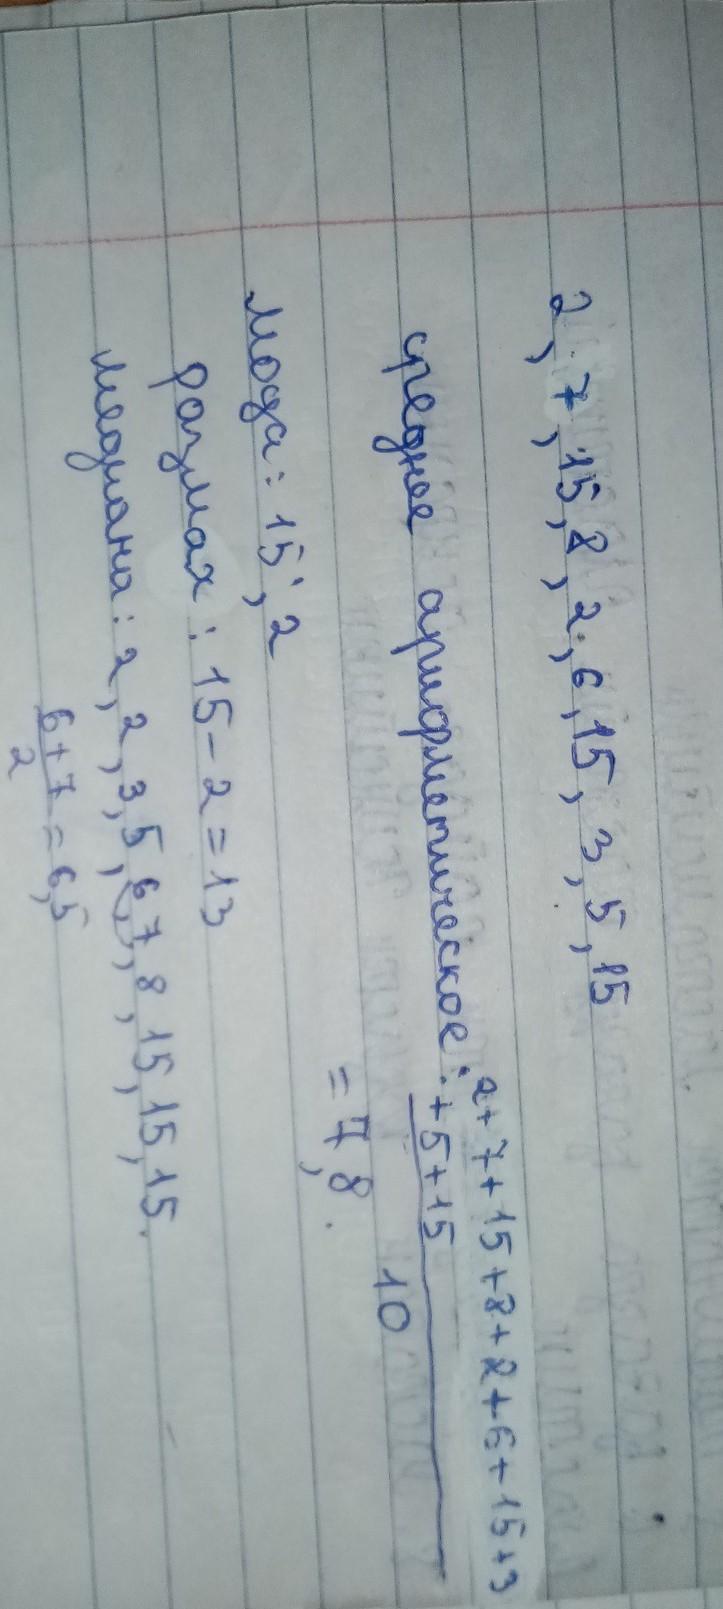 2, 7, 15, 8, 2, 6, 15, 3, 5, 15
среднее арифметическое: 2+7+15+8+2+6+15+3
+5+15
10
= 7,8.
мода: 15, 2
размах: 15-2=13
медиана: 2, 2, 3, 5, 6, 7, 8, 15, 15, 15.
6+7
2
= 6,5